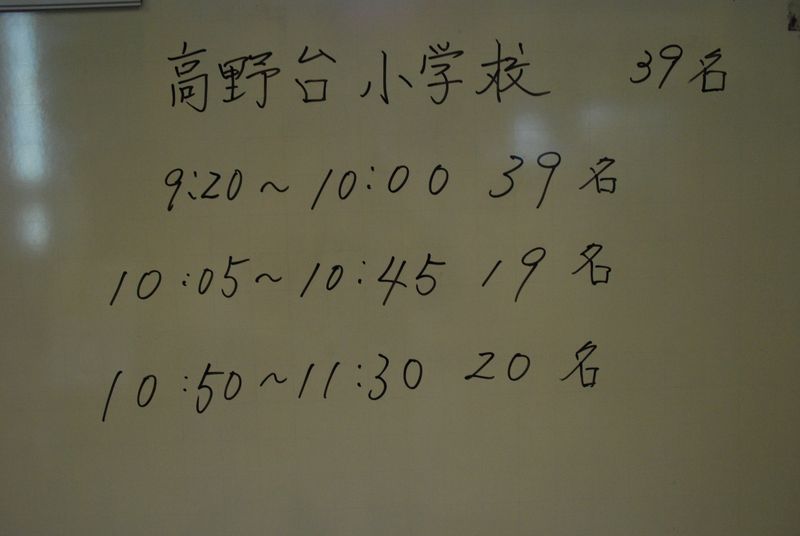 高野台小学校 39名
9:20～10:00 39名
10:05～10:45 19名
10:50～11:30 20名